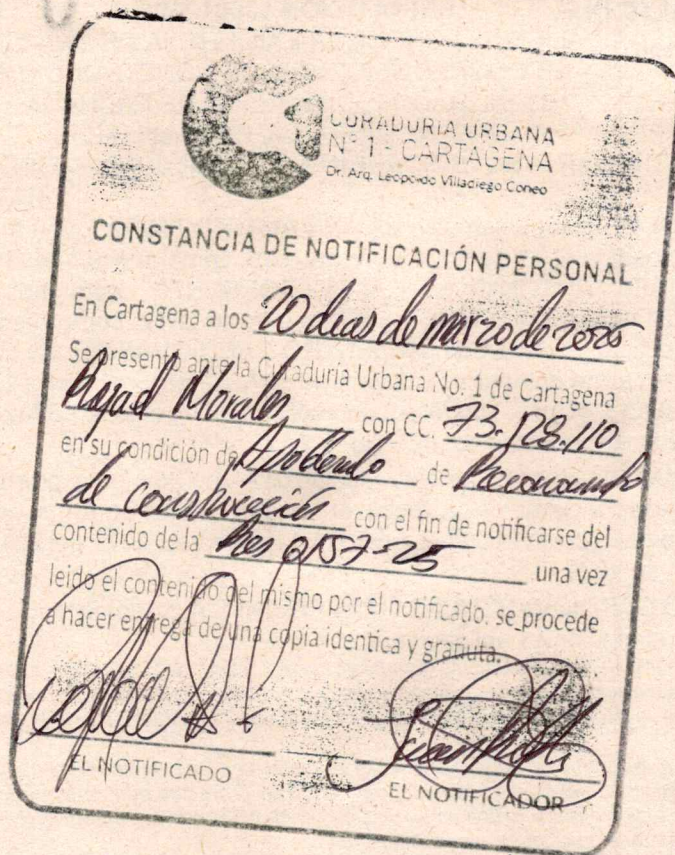 CURADURIA URBANA
N° 1 - CARTAGENA
Dr. Arq. Leopoldo Villadiego Coneo
CONSTANCIA DE NOTIFICACIÓN PERSONAL
En Cartagena a los 20 dias de marzo de 2025
Se presentó ante la Curaduria Urbana No. 1 de Cartagena
Rafael Morales con CC. 73.128.110
en su condición de Apoderado de Reconocimiento
de construcción con el fin de notificarse del
contenido de la Res 0157-25 una vez
leido el contenido del mismo por el notificado, se procede
a hacer entrega de una copia identica y gratiuta.
EL NOTIFICADO
EL NOTIFICADOR